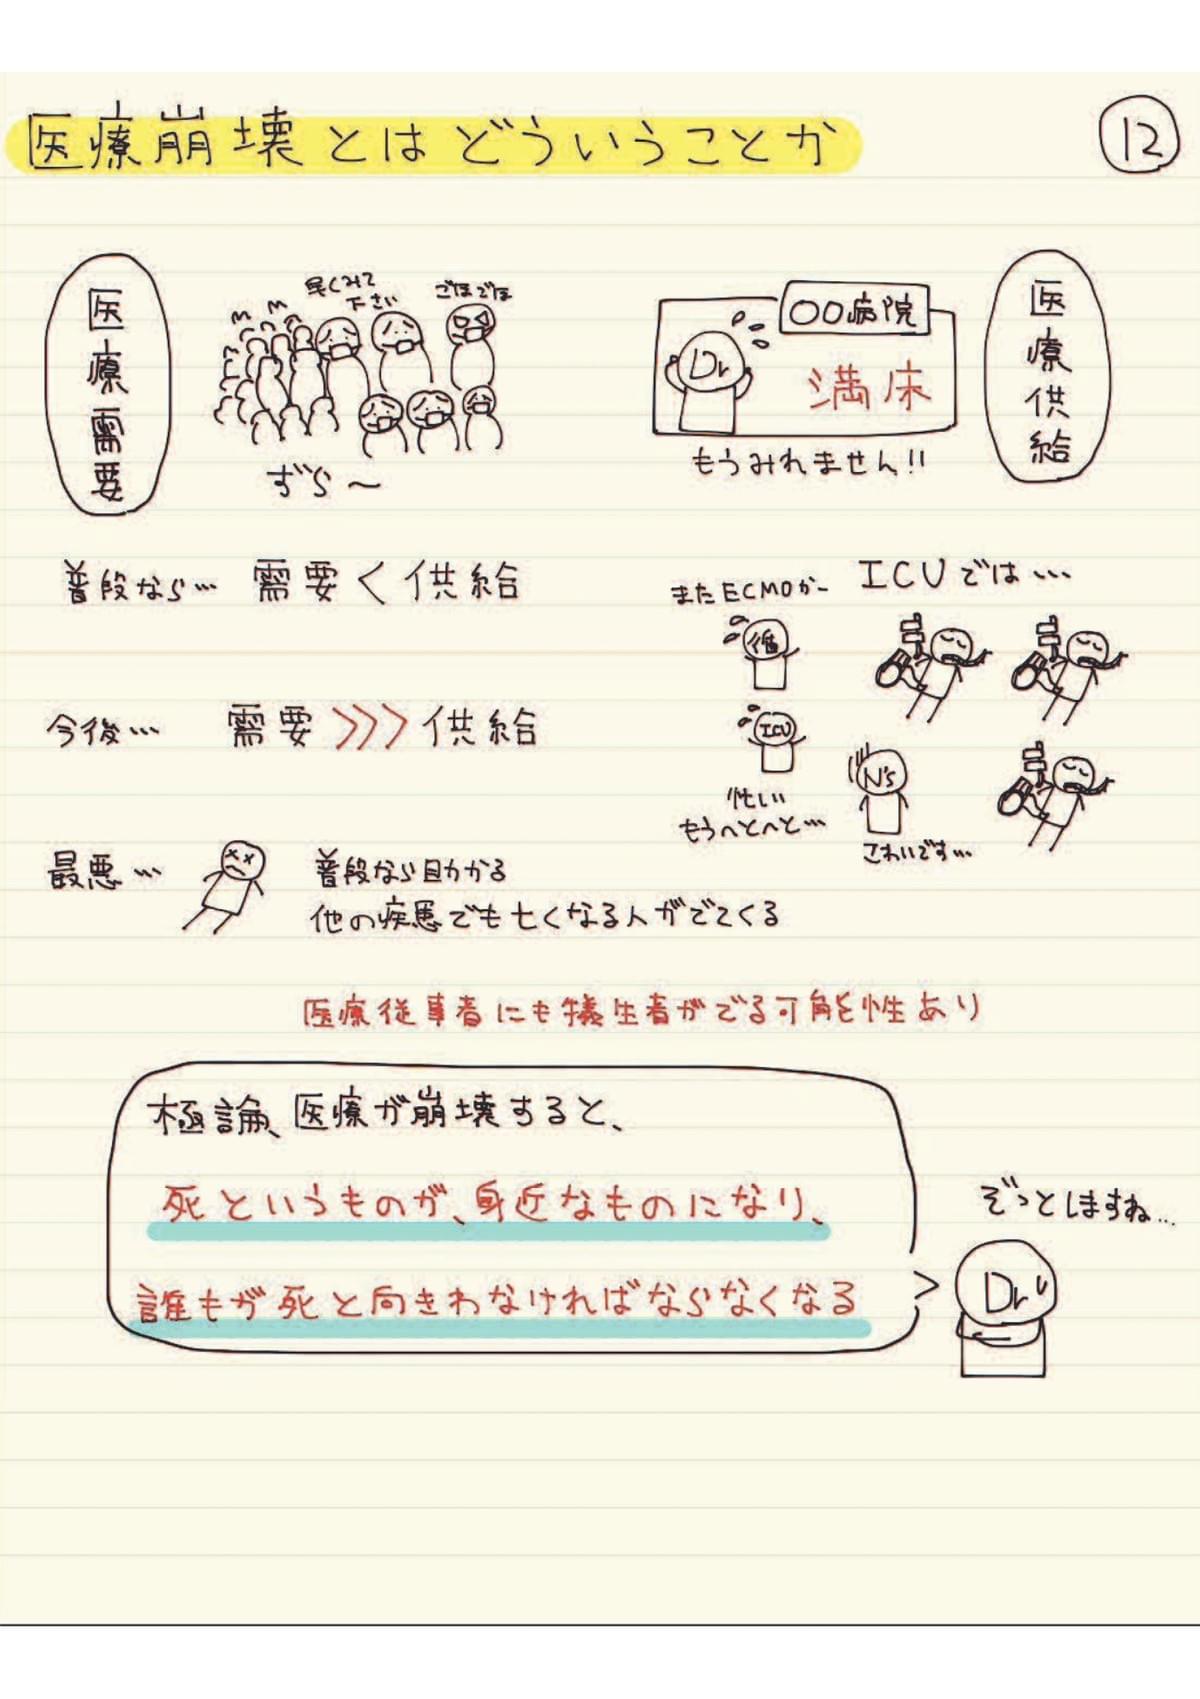 医療崩壊とはどういうことか
12
医療需要
早くみて
下さい
ごほごほ
ずら～
〇〇病院
Dr
満床
もうみれません!!
医療供給
普段なら… 需要＜供給
今後… 需要>>>供給
最悪… 普段なら助かる
他の疾患でも亡くなる人がでてくる
ICUでは…
またECMOかー
循
ICU
忙しい
もうへとへと…
N's
こわいです…
医療従事者にも犠牲者がでる可能性あり
極論、医療が崩壊すると、
死というものが、身近なものになり、
誰もが死と向きわなければならなくなる
ぞっとしますね…
Dr